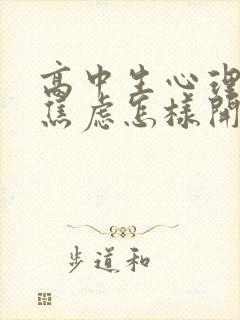 高中生心理
焦虑怎样開
步道和